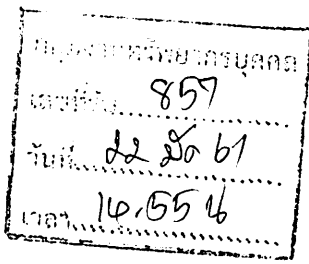 ทรัพยากรบุคคล
เลขที่รับ 857
วันที่ 22 มีค 61
เวลา 14.55 น